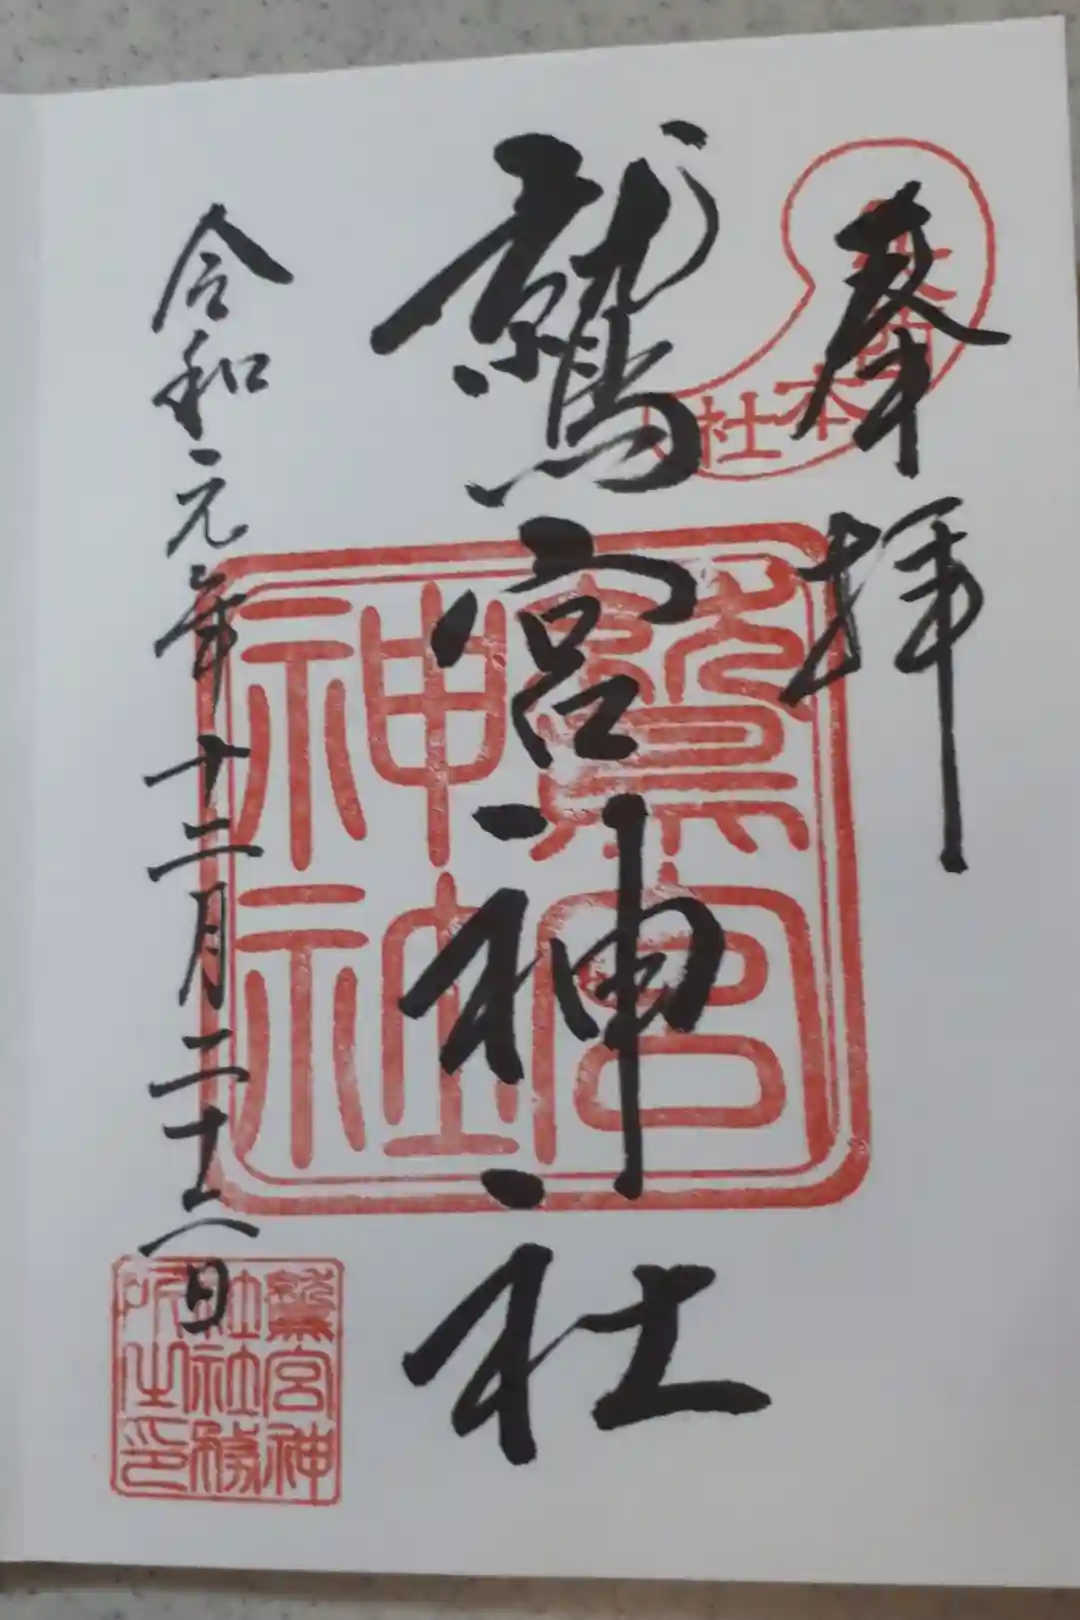 奉拝
本社
鷲宮神社
鷲宮
神社
令和元年十二月二十六日
鷲宮神
社社務
所之印